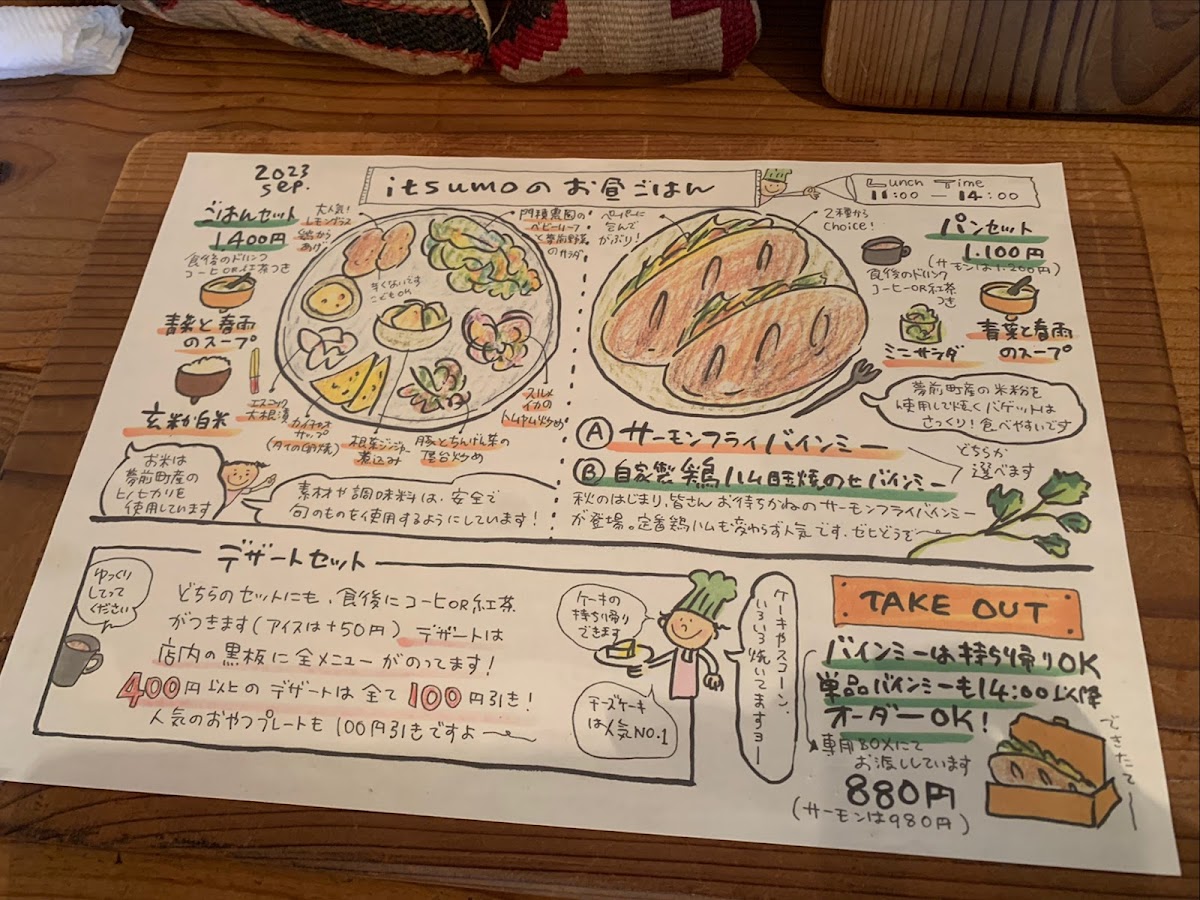 2023
sep.
itsumoのお昼ごはん
Lunch Time
11:00 — 14:00
ごはんセット
1400円
食後のドリンク
コーヒーOR紅茶つき
青菜と春雨
のスープ
玄米か白米
大人気!
レモングラス
鶏から
あげ
辛くないです
こどもOK
門積農園の
ベビーリーフ
と夢前野菜
のサラダ
エスニック
大根漬
カイチャオ
サップ
(タイの卵焼)
根菜ジンジャー
煮込み
豚とちんげん菜の
屋台炒め
スルメ
イカの
トムヤム炒め
お米は
夢前町産の
ヒノヒカリを
使用しています
素材や調味料は、安全で
旬のものを使用するようにしています!
ペーパーに
包んで
がぶり!
2種から
choice!
パンセット
1.100円
(サーモンは1.200円)
食後のドリンク
コーヒーOR紅茶
つき
ミニサラダ
青菜と春雨
のスープ
夢前町産の米粉を
使用して焼くバゲットは
さっくり!食べやすいです
Ⓐ サーモンフライバインミー
Ⓑ 自家製鶏ハム目玉焼のせバインミー
どちらか
選べます
秋のはじまり、皆さんお待ちかねのサーモンフライバインミー
が登場。定番鶏ハムも変わらず人気です。ゼヒどうぞ〜
デザートセット
ゆっくり
してって
ください
どちらのセットにも、食後にコーヒーOR紅茶
がつきます(アイスは+50円) デザートは
店内の黒板に全メニューがのってます!
400円以上のデザートは全て100円引き!
人気のおやつプレートも100円引きですよ〜
ケーキの
持ち帰り
できます
チーズケーキ
は人気NO.1
ケーキやスコーン、
いろいろ焼いてますヨー
TAKE OUT
バインミーは持ち帰りOK
単品バインミーも14:00以降
オーダーOK!
専用BOXにて
お渡ししています
880円
(サーモンは980円)
できたて〜